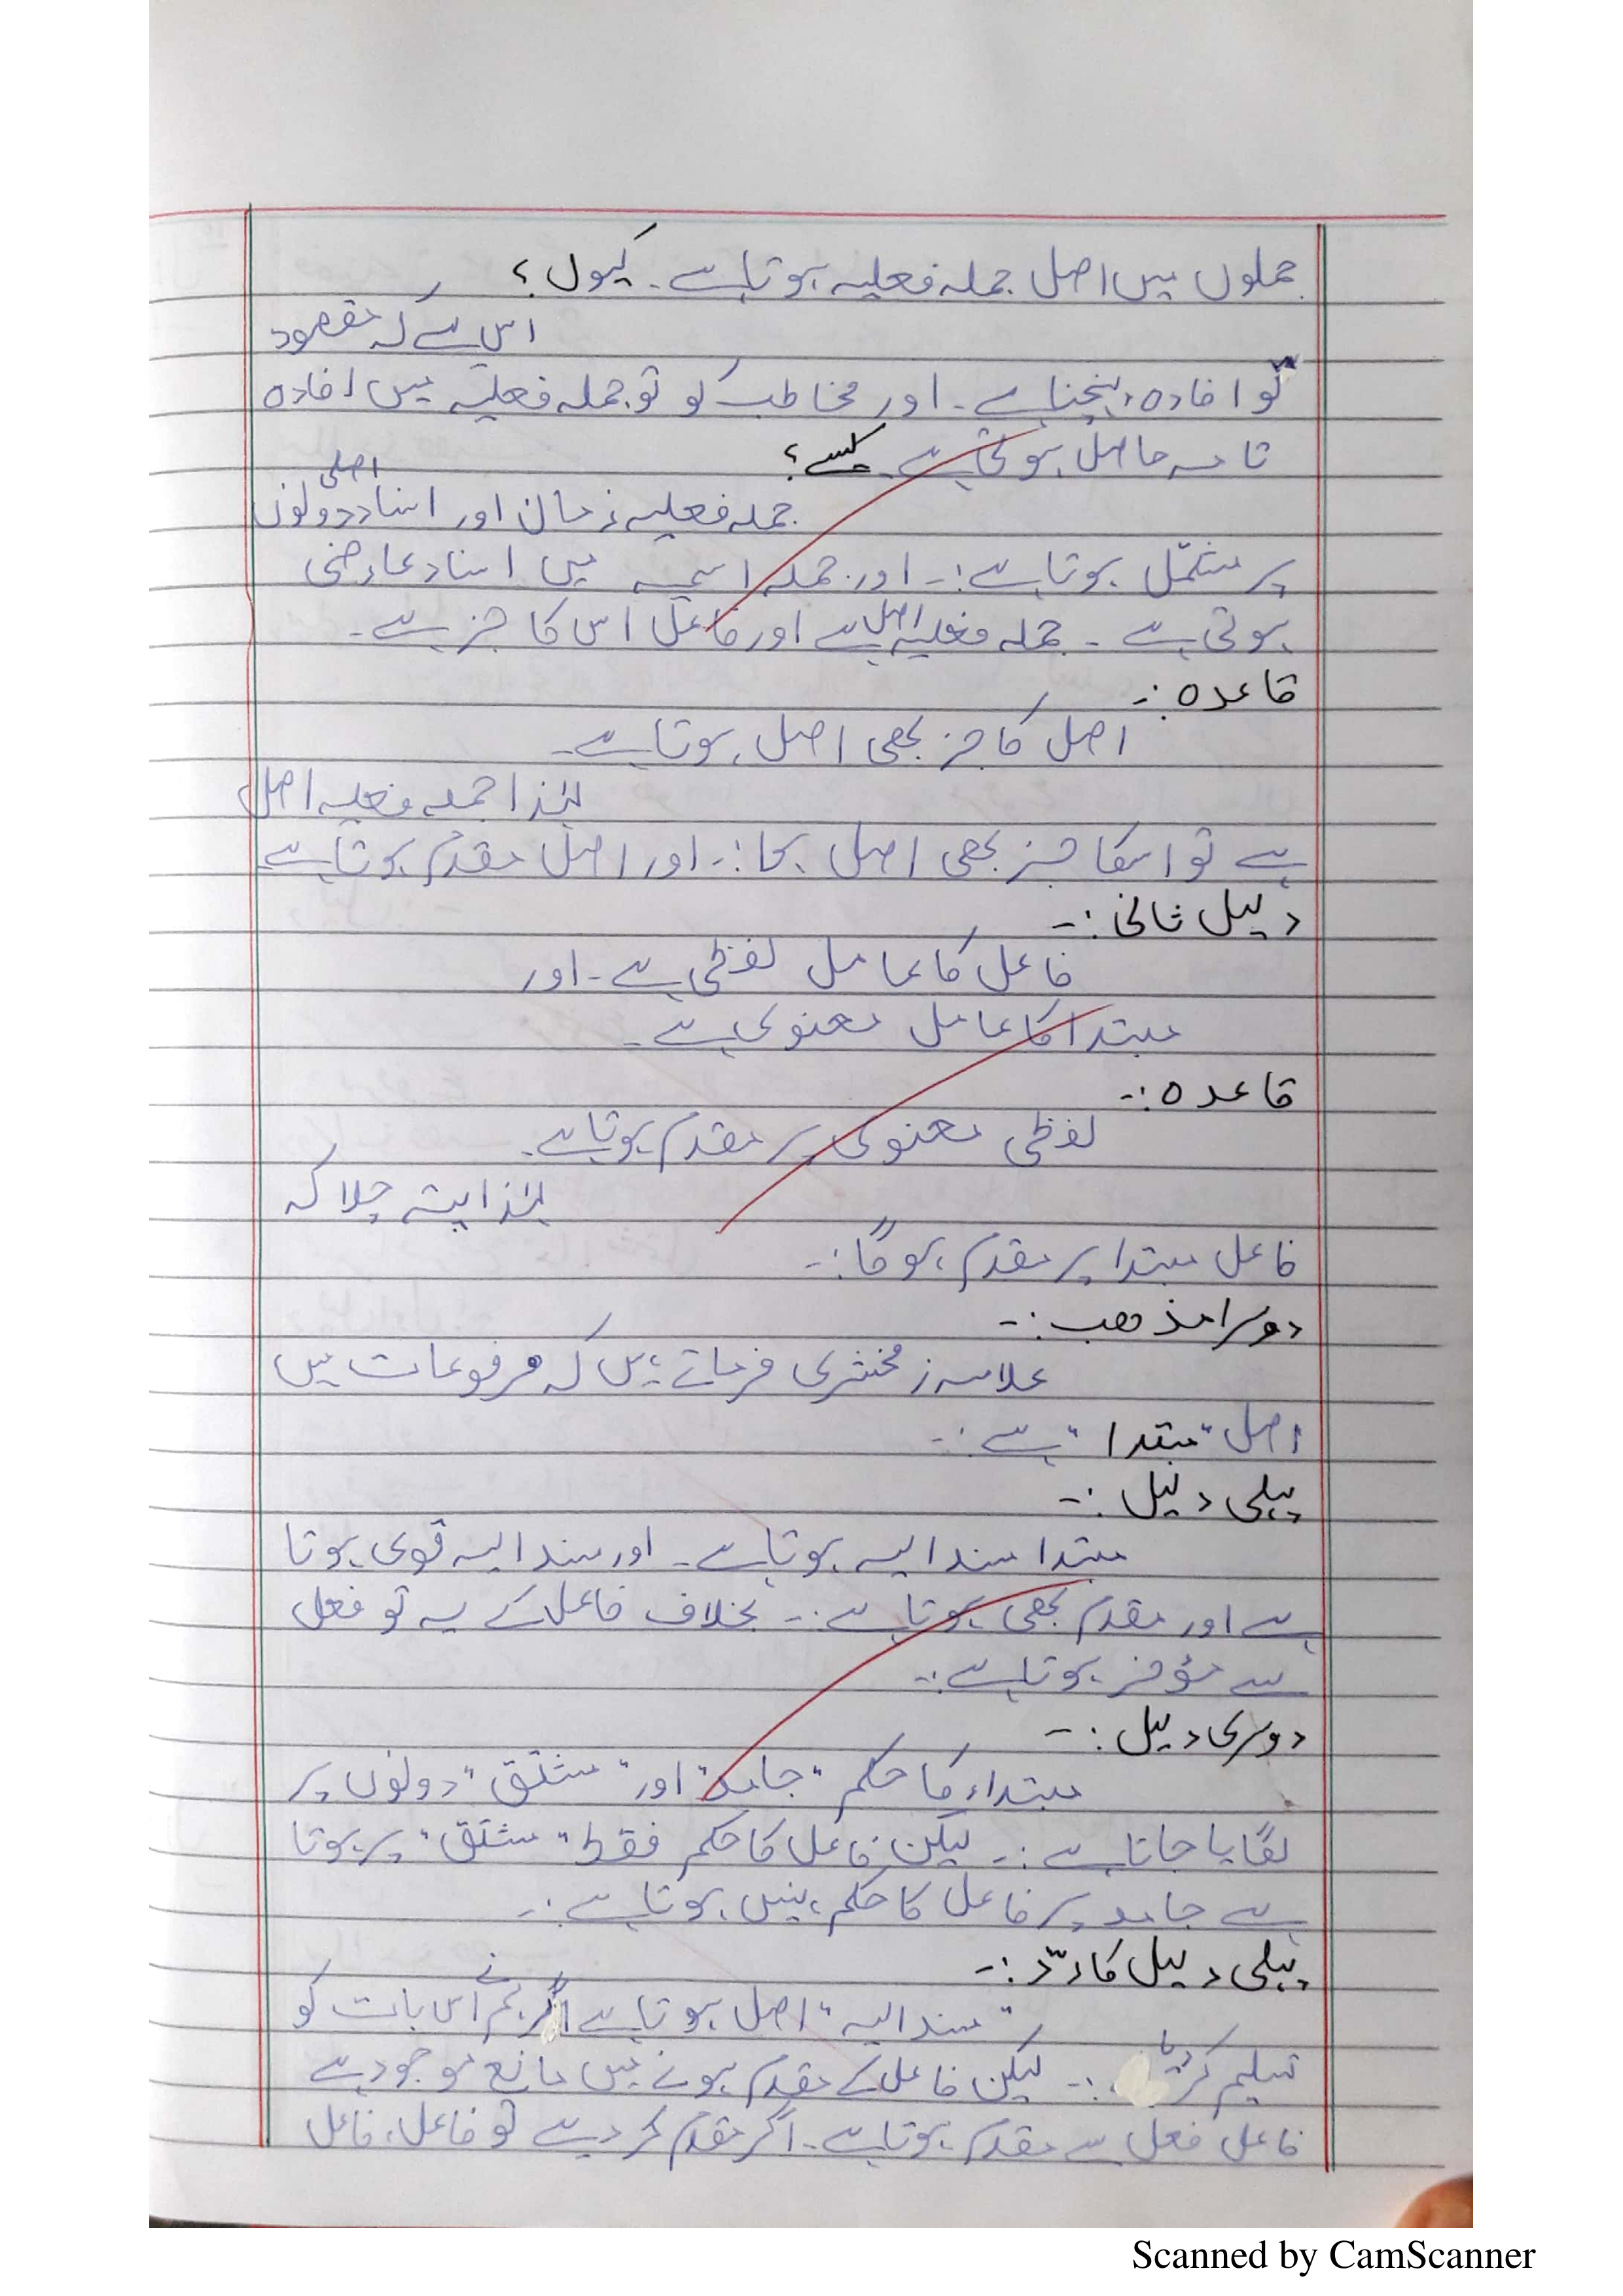 جملوں میں اصل جملہ فعلیہ ہوتا ہے۔ کیوں؟
اس لئے کہ مقصود
تو افادہ پہنچنا ہے۔ اور مخاطب کو تو جملہ فعلیہ میں افادہ
تامہ حاصل ہوتی ہے۔ کیسے؟
جملہ فعلیہ زمان اور اسناد اصلی دونوں
پر مشتمل ہوتا ہے:۔ اور جملہ اسمیہ میں اسناد عارضی
ہوتی ہے۔ جملہ فعلیہ اصل ہے اور فاعل اس کا جز ہے۔
قاعدہ:۔
اصل کا جز بھی اصل ہوتا ہے۔
لہٰذا جملہ فعلیہ اصل
ہے تو اسکا جز بھی اصل ہوگا:۔ اور اصل مقدم ہوتا ہے
دلیل ثانی:۔
فاعل کا عامل لفظی ہے۔ اور
مبتدا کا عامل معنوی ہے۔
قاعدہ:۔
لفظی معنوی پر مقدم ہوتا ہے۔
لہٰذا پتہ چلا کہ
فاعل مبتدا پر مقدم ہوگا:۔
دوسرا مذھب:۔
علامہ زمخشری فرماتے ہیں کہ مرفوعات میں
اصل "مبتدا" ہے:۔
پہلی دلیل:۔
مبتدا مسند الیہ ہوتا ہے۔ اور مسند الیہ قوی ہوتا
ہے اور مقدم بھی ہوتا ہے:۔ بخلاف فاعل کے یہ تو فعل
سے مؤخر ہوتا ہے:۔
دوسری دلیل:۔
مبتداء کا حکم "جامد" اور "مشتق" دونوں پر
لگایا جاتا ہے:۔ لیکن فاعل کا حکم فقط "مشتق" پر ہوتا
ہے جامد پر فاعل کا حکم نہیں ہوتا ہے:۔
پہلی دلیل کا ردّ:۔
"مسند الیہ" اصل ہوتا ہے اگر ہم نے اس بات کو
تسلیم کر لیا:۔ لیکن فاعل کے مقدم ہونے میں مانع موجود ہے
فاعل فعل سے مقدم ہوتا ہے۔ اگر مقدم کر دیے تو فاعل، فاعل
Scanned by CamScanner